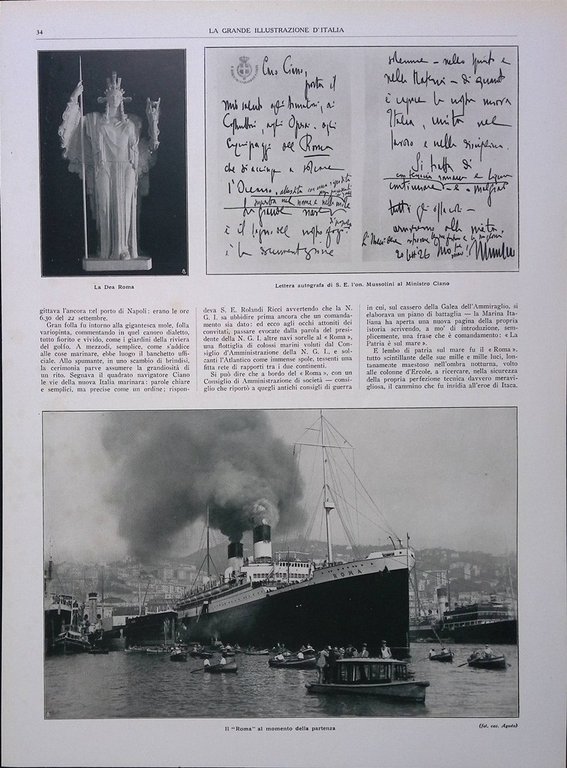 34
LA GRANDE ILLUSTRAZIONE D'ITALIA
La Dea Roma
Caro Ciano,
porta il
mio saluto agli
agli Operai, agli
Equipaggi del Roma
che si accinge a solcare
l'Oceano.
Italia, unita nel
lavoro e nella disciplina.
Si tratta di
Lettera autografa di S. E. l'on. Mussolini al Ministro Ciano
gittava l'ancora nel porto di Napoli: erano le ore
6.30 del 22 settembre.
Gran folla fu intorno alla gigantesca mole, folla
variopinta, commentando in quel canoro dialetto,
tutto fiorito e vivido, come i giardini della riviera
del golfo. A mezzodì, semplice, come s'addice
alle cose marinare, ebbe luogo il banchetto uffi-
ciale. Allo spumante, in uno scambio di brindisi,
la cerimonia parve assumere la grandiosità di
un rito. Segnava il quadrato navigatore Ciano
le vie della nuova Italia marinara: parole chiare
e semplici, ma precise come un ordine; rispon-
deva S. E. Rolandi Ricci avvertendo che la N.
G. I. sa ubbidire prima ancora che un comanda-
mento sia dato: ed ecco agli occhi attoniti dei
convitati, passare evocata dalla parola del presi-
dente della N. G. I. altre navi sorelle al « Roma »,
una flottiglia di colossi marini voluti dal Con-
siglio d'Amministrazione della N. G. I., e sol-
canti l'Atlantico come immense spole, tessenti una
fitta rete di rapporti tra i due continenti.
Si può dire che a bordo del « Roma », con un
Consiglio di Amministrazione di società — consi-
glio che riportò a quegli antichi consigli di guerra
in cui, sul cassero della Galea dell'Ammiraglio, si
elaborava un piano di battaglia — la Marina Ita-
liana ha aperta una nuova pagina della propria
istoria scrivendo, a mo' di introduzione, sem-
plicemente, una frase che è comandamento: « La
Patria è sul mare ».
E lembo di patria sul mare fu il « Roma »,
tutto scintillante delle sue mille e mille luci, lon-
tanamente maestoso nell'ombra notturna, volto
alle colonne d'Ercole, a ricercare, nella sicurezza
della propria perfezione tecnica davvero meravi-
gliosa, il cammino che fu insidia all'eroe di Itaca.
ROMA
Il "Roma" al momento della partenza
(fot. cav. Agosto)